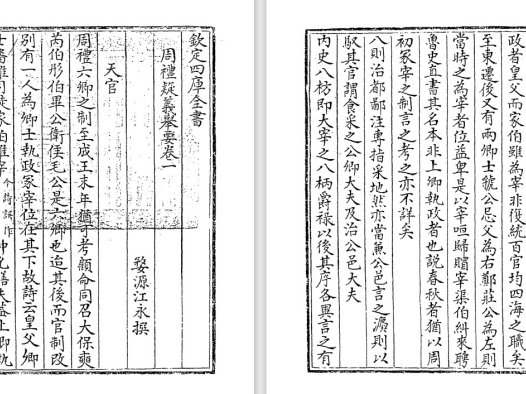 欽定四庫全書
周禮疑義舉要卷一
婺源江永撰
天官
周禮六卿之制至成王末年猶可考顧命同召大保奭
芮伯彤伯畢公衛侯毛公是六卿也迨其後而官制改
別有一人為卿士執政冢宰位在其下故詩云皇父卿
士番維司徒家伯維宰今詩誤作仲允膳夫蓋上卿執
政者皇父而家伯雖為宰非復統百官均四海之職矣
至東遷後又有兩卿士虢公忌父為右鄭莊公為左則
當時之為宰者位益卑是以宰咺歸賵宰渠伯糾來聘
魯史直書其名本非上卿執政者也說春秋者猶以周
初冢宰之制言之考之亦不詳矣
八則治都鄙注專指采地然亦當兼公邑言之灋則以
馭其官謂食采之公卿大夫及治公邑大夫
内史八枋即大宰之八柄爵祿以後其序各異言之有